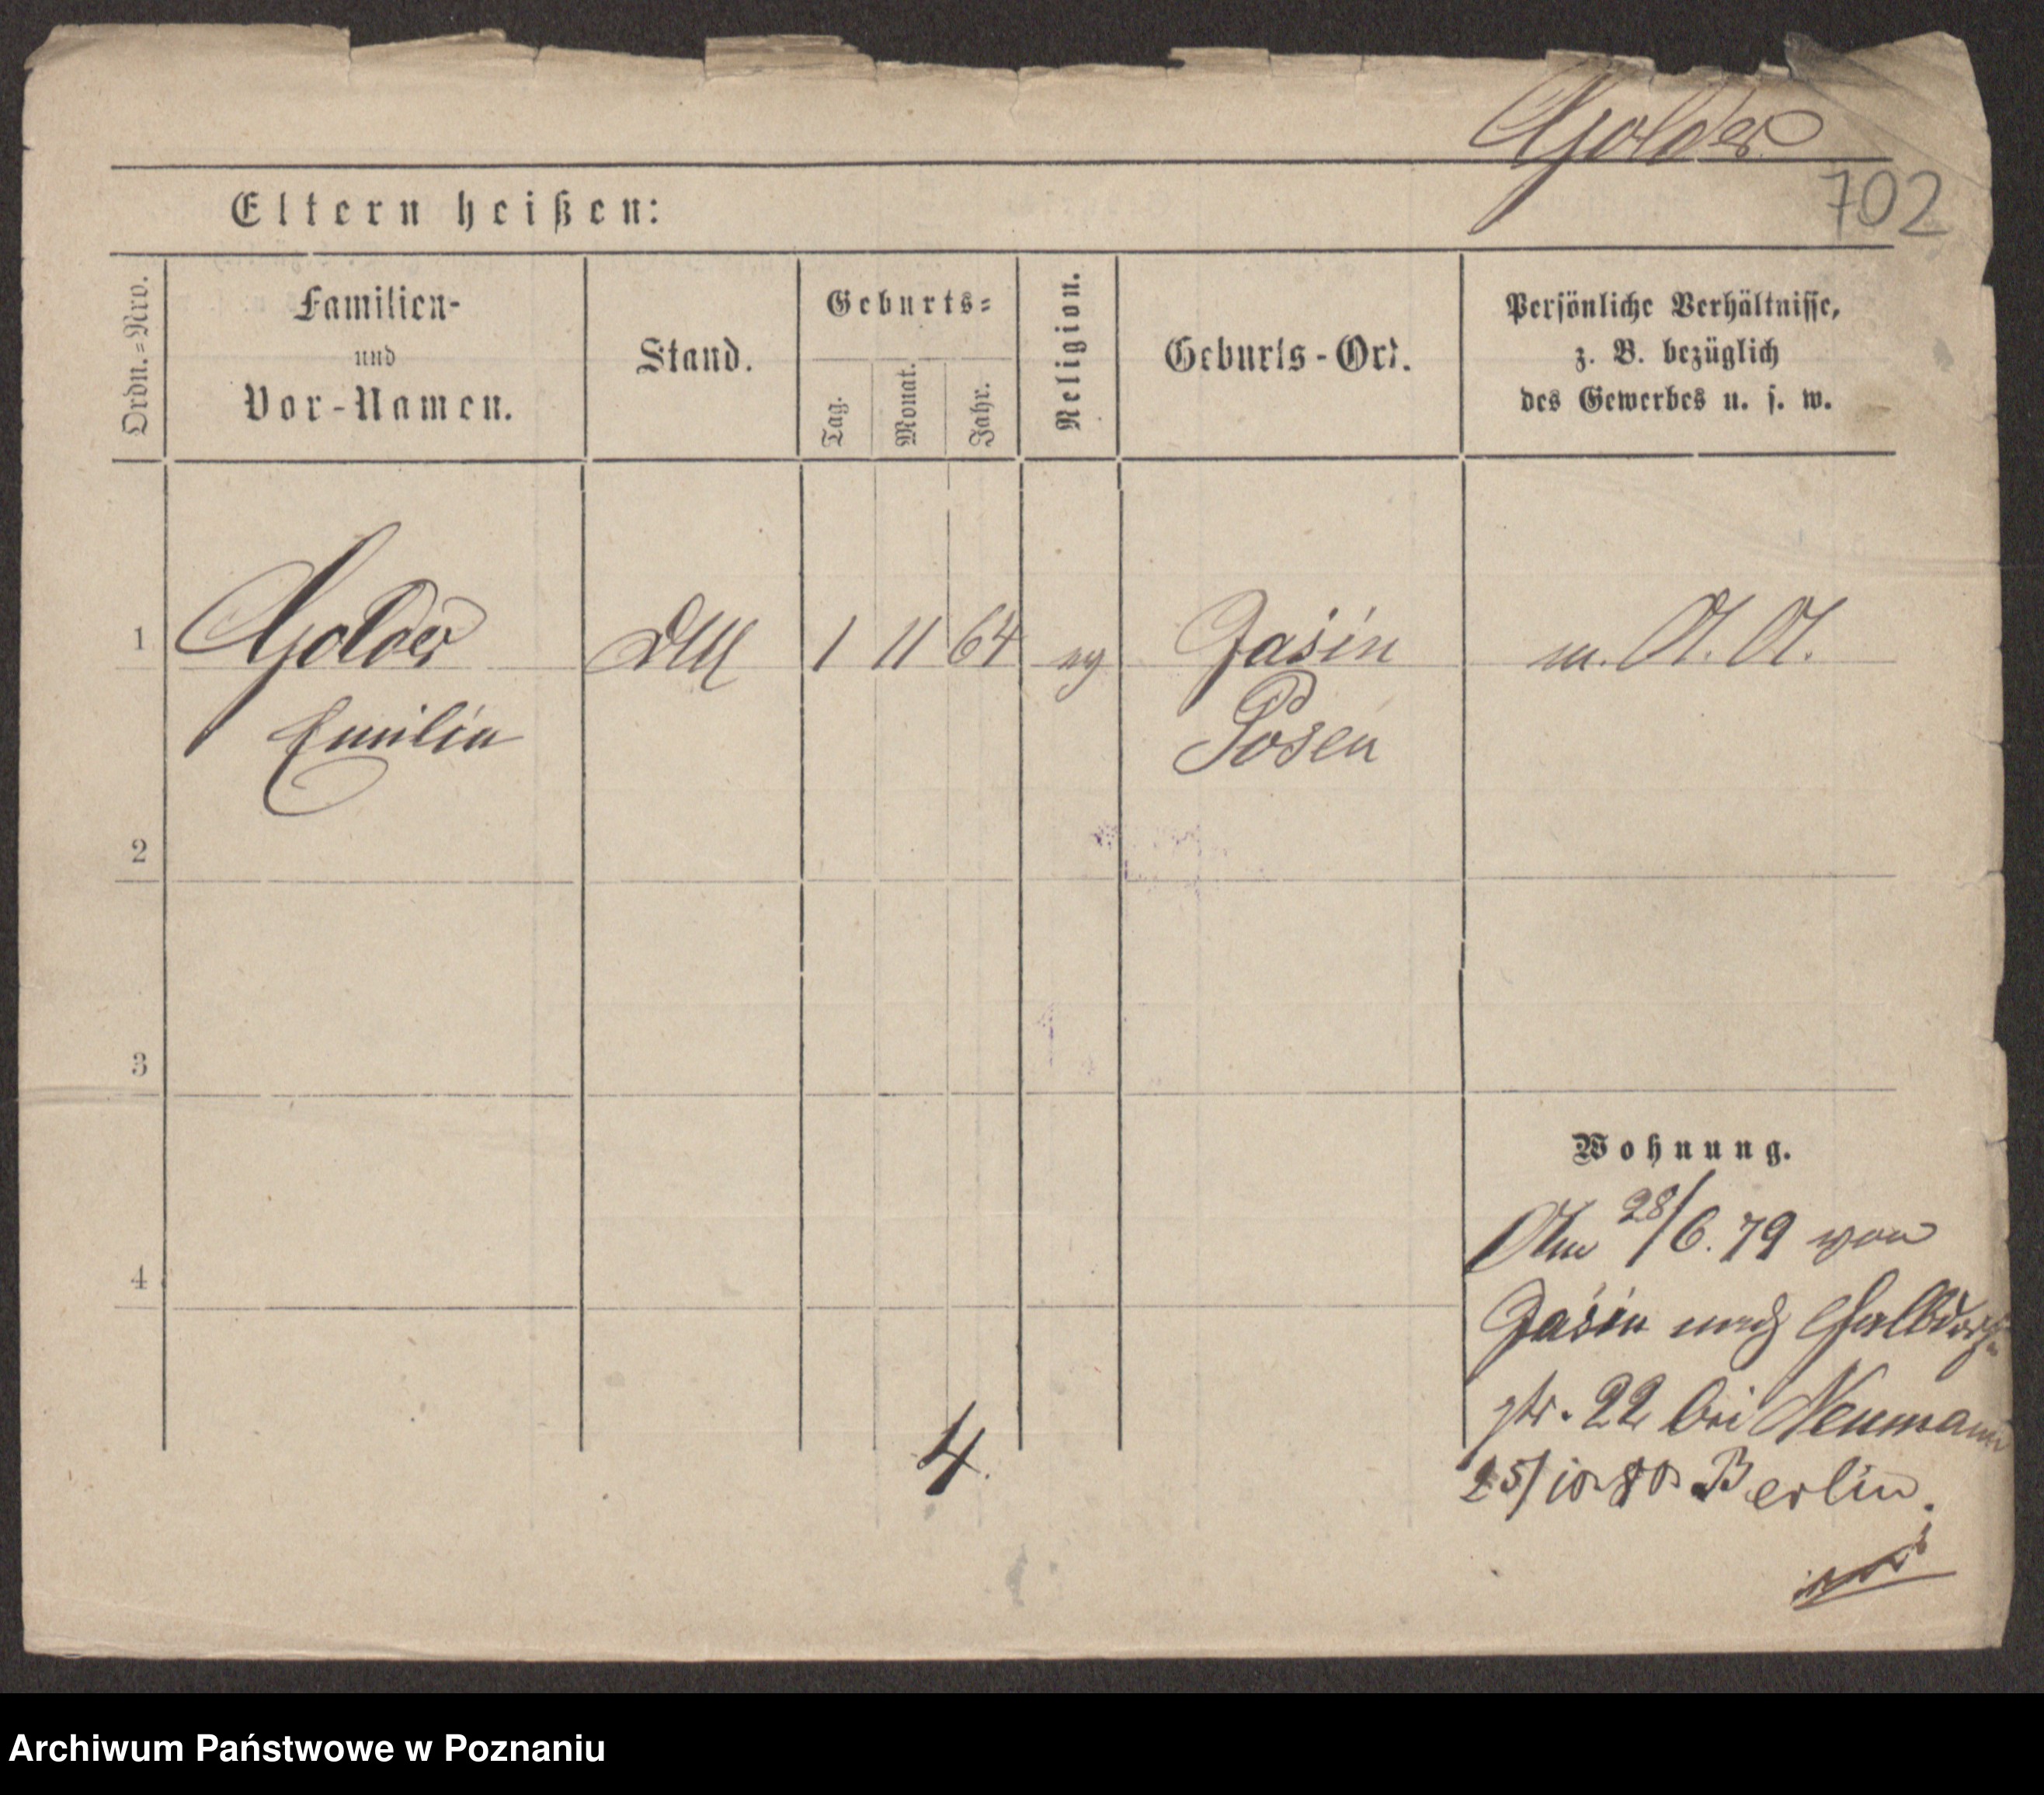 Golder
702
Eltern heißen:
Ordn.=Nro.
Familien-
und
Vor-Namen.
Stand.
Geburts=
Tag.
Monat.
Jahr.
Religion.
Geburts-Ort.
Persönliche Verhältnisse,
z. B. bezüglich
des Gewerbes u. s. w.
1 Golder 1 11 64 ev Jasin m. A. A.
Emilia Posen
2
3
Wohnung.
Am 28/6. 79 von
4
Jasin nach Halbdorf-
str. 22 bei Neumann
4.
25/10 80. Berlin.
Archiwum Państwowe w Poznaniu